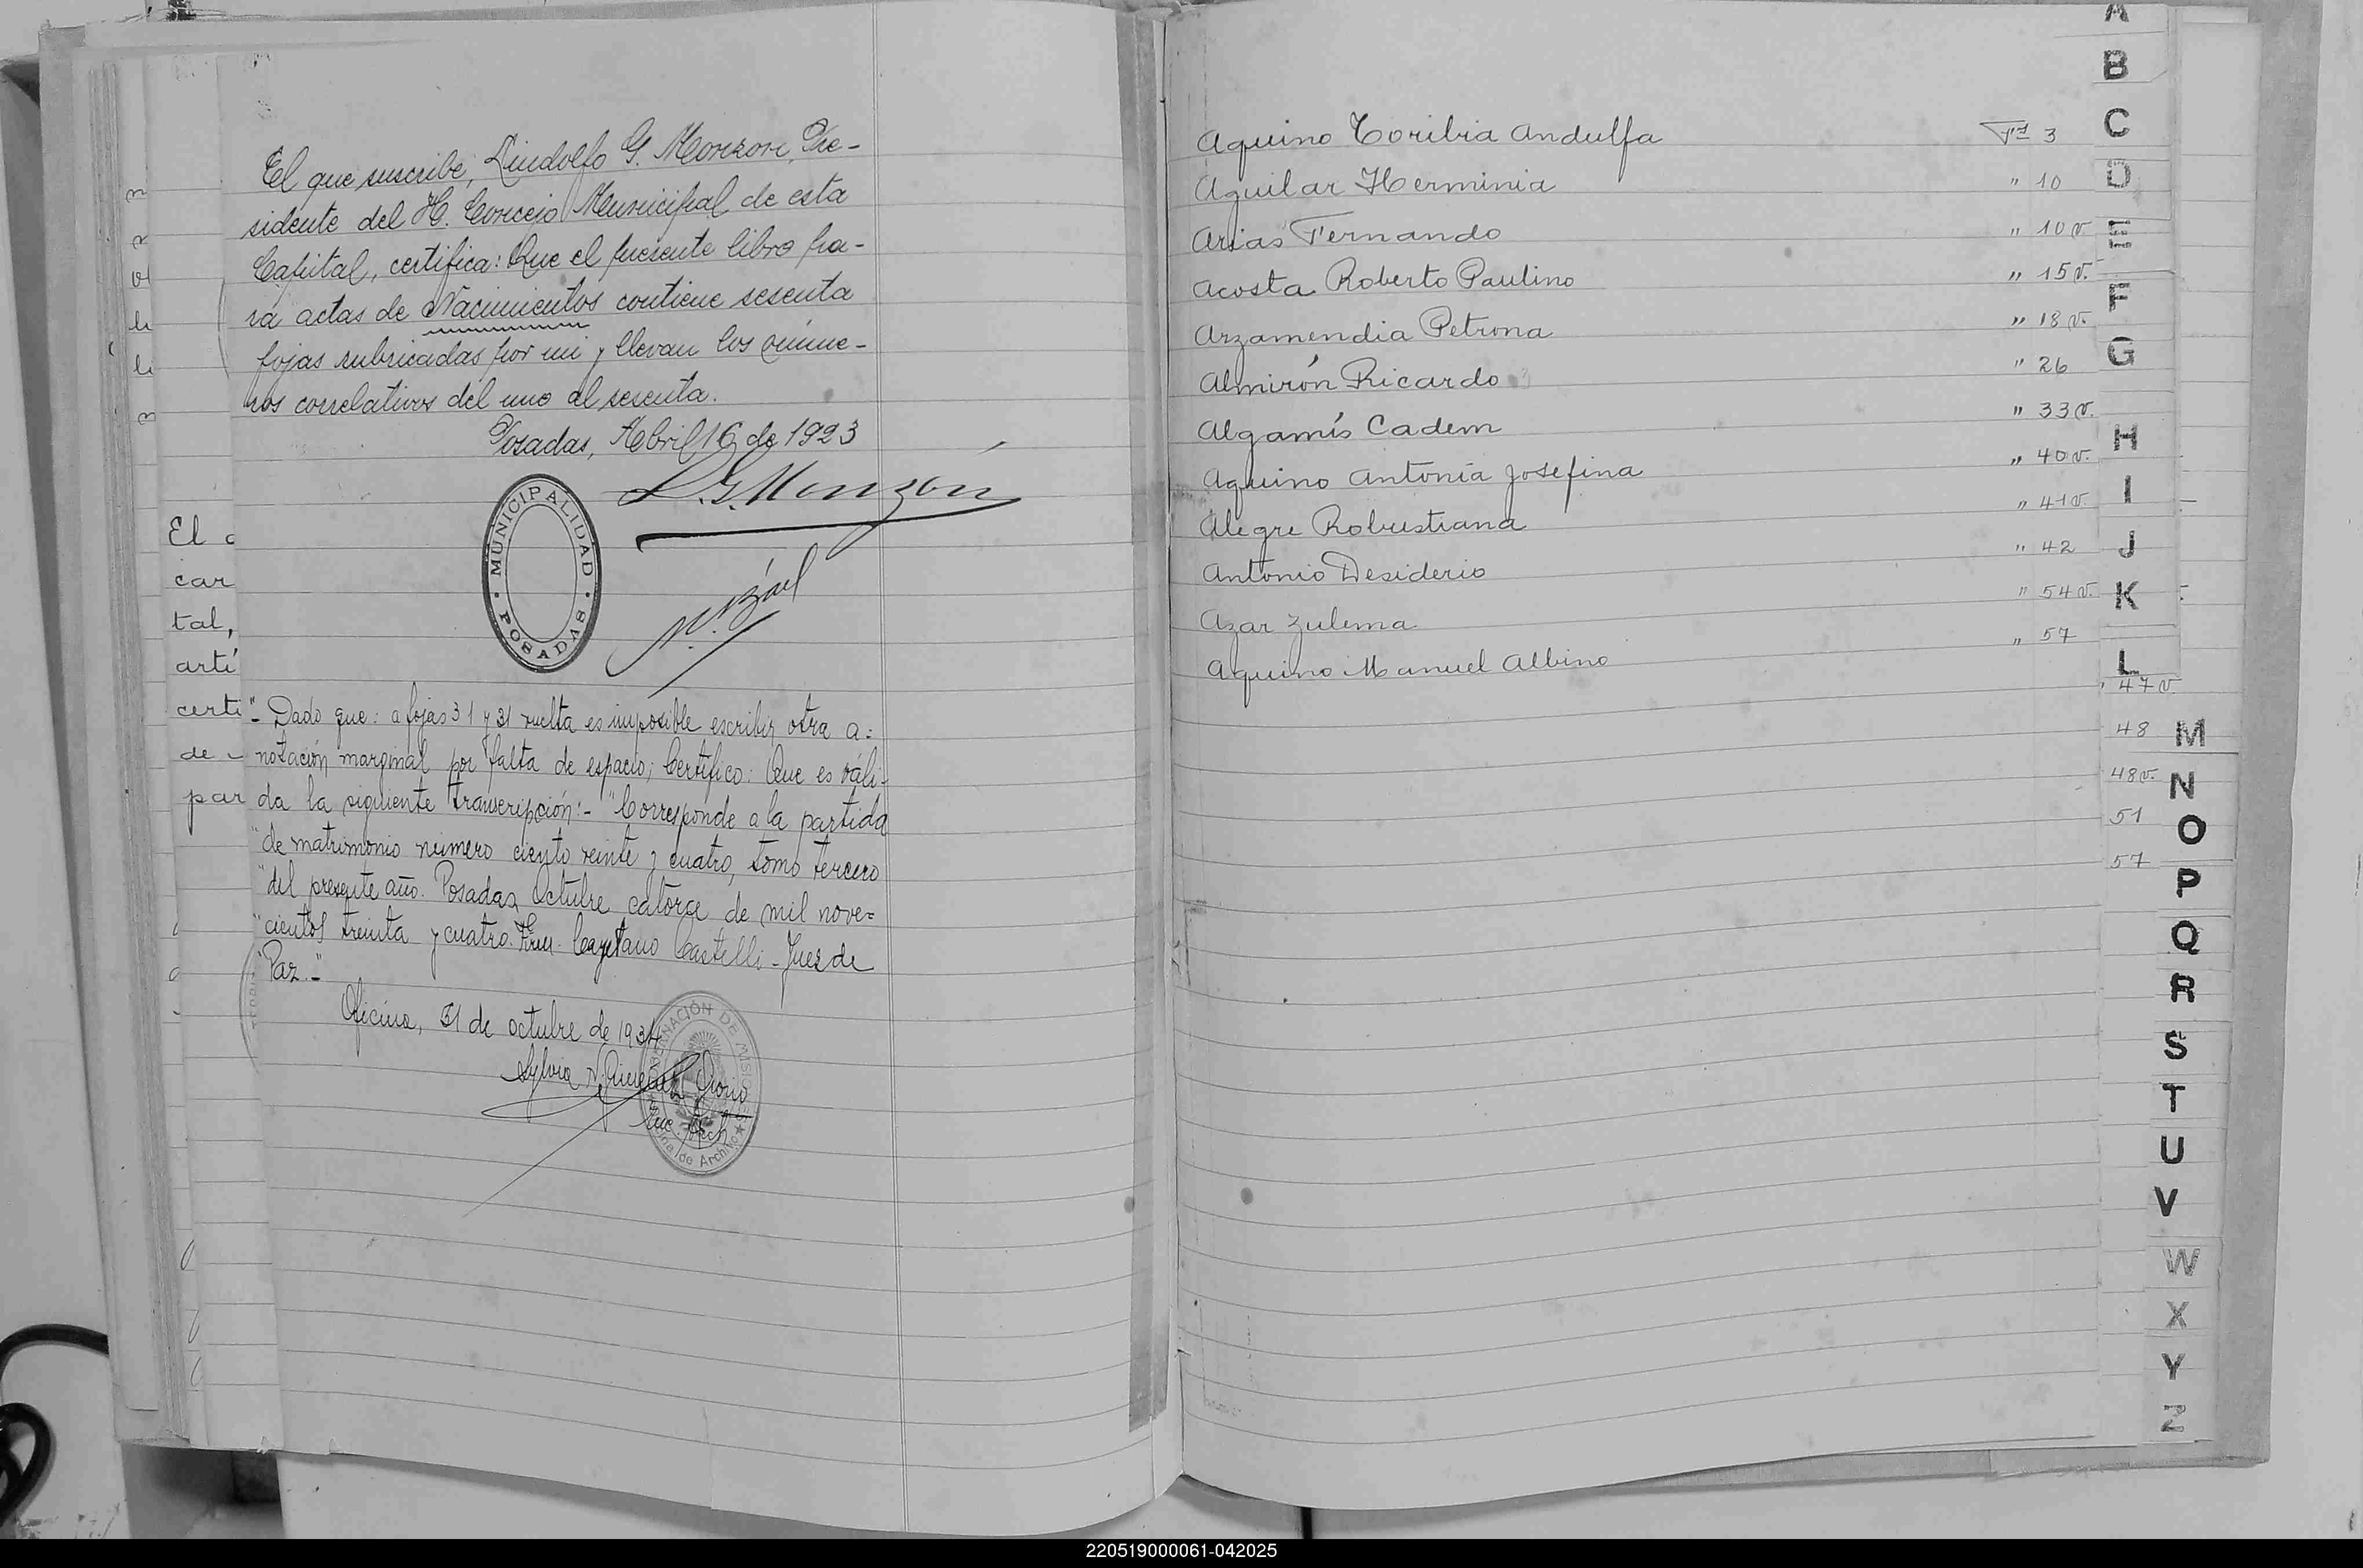 El que suscribe, Lindolfo G. Monzon, Pre-
sidente del H. Concejo Municipal de esta
Capital, certifica: Que el presente libro pa-
ra actas de Nacimientos contiene sesenta
fojas rubricadas por mi y llevan los núme-
ros correlativos del uno al sesenta.
Posadas, Abril 16 de 1923
L. G. Monzón
MUNICIPALIDAD
POSADAS
El
car
tal,
arti
certi
de
par
"- Dado que: a fojas 31 y 31 vuelta es imposible escribir otra a=
notación marginal por falta de espacio; Certifico: Que es váli-
da la siguiente transcripción:- "Corresponde a la partida
"de matrimonio número ciento veinte y cuatro, tomo tercero
"del presente año. Posadas, Octubre catorce de mil nove=
"cientos treinta y cuatro. Cayetano Castelli - Juez de
"Paz.-"
Oficina, 31 de octubre de 1934
Sylvia
GOBERNACIÓN DE MISIONES
Oficina de Archivo
Aquino Toribia Andulfa Fs 3
Aguilar Herminia " 10
Arias Fernando " 10 v.
Acosta Roberto Paulino " 15 v.
Arzamendia Petrona " 18 v.
Almirón Ricardo " 26
Algamís Cadem " 33 v.
Aquino Antonia Josefina " 40 v.
Alegre Robustiana " 41 v.
Antonio Desiderio " 42
Azar Zulema " 54 v.
Aquino Manuel Albino " 57
47 v.
48
48 v.
51
57
A
B
C
D
E
F
G
H
I
J
K
L
M
N
O
P
Q
R
S
T
U
V
W
X
Y
Z
220519000061-042025